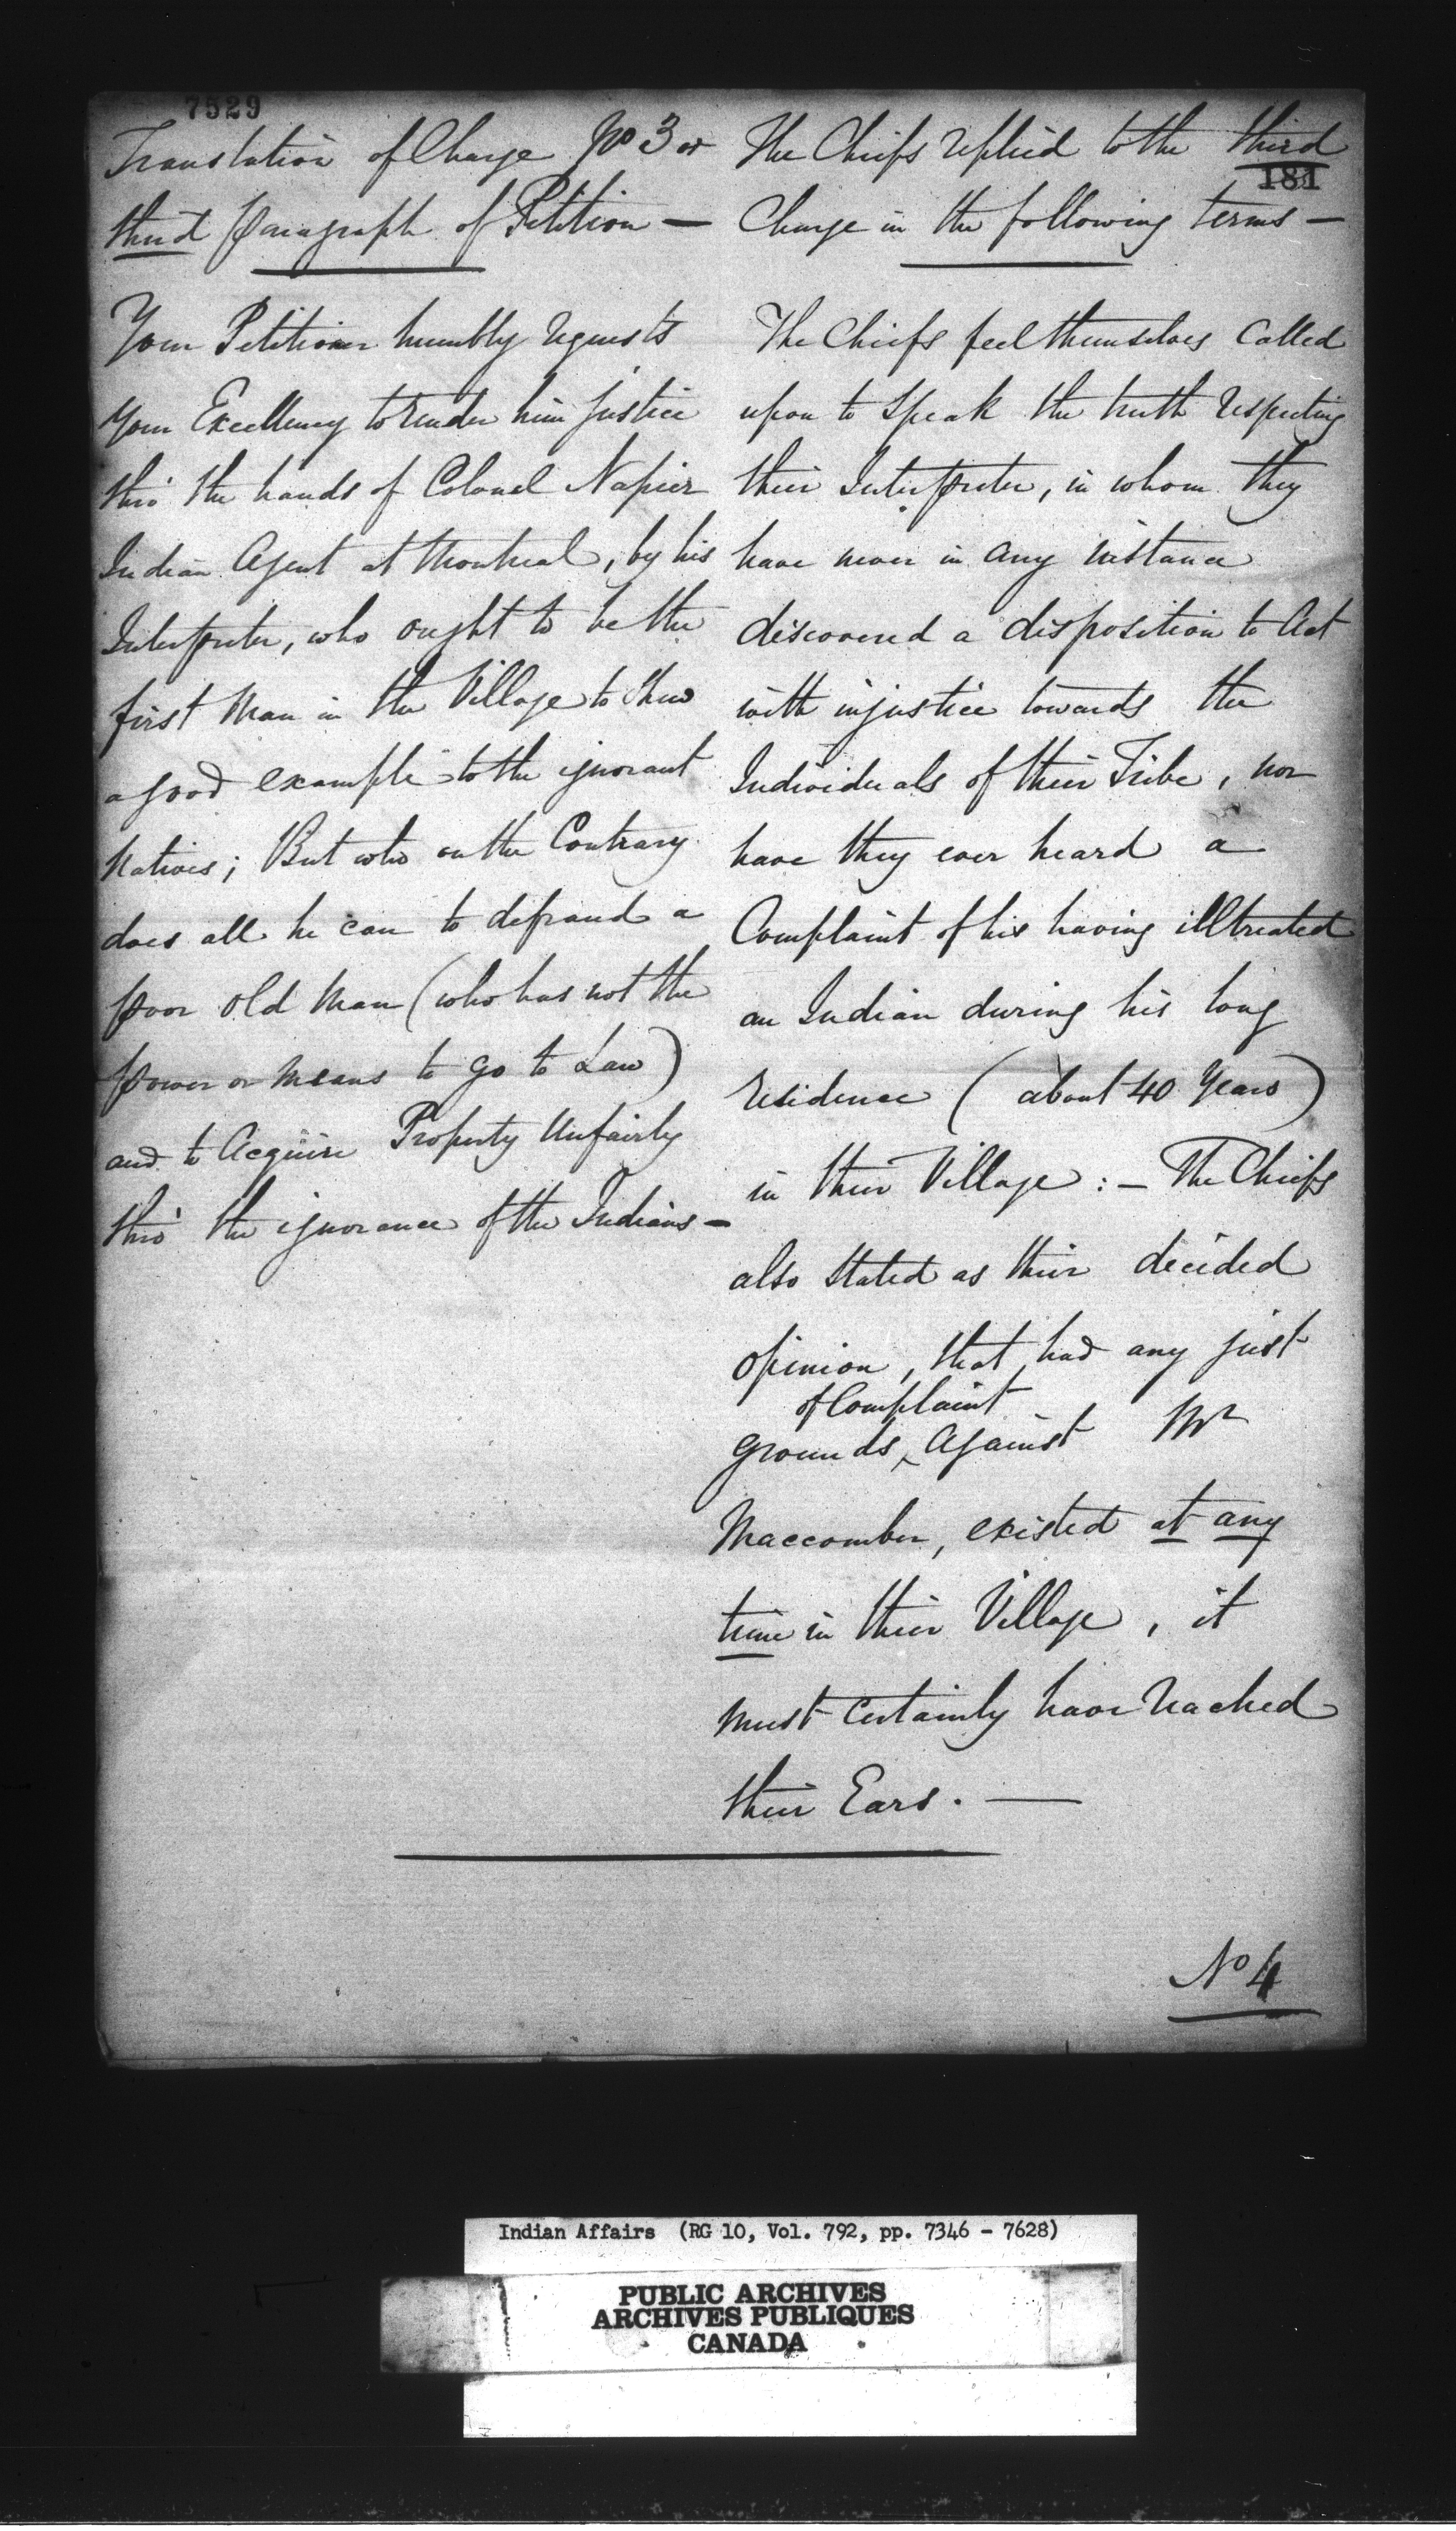 7529
Translation of Charge No 3 or
third paragraph of Petition —
Your Petitioner humbly requests
your Excellency to render him justice
thro' the hands of Colonel Napier
Indian Agent at Montreal, by his
Interpreter, who ought to be the
first Man in the Village to shew
a good example to the ignorant
Natives; But who on the Contrary
does all he can to defraud a
poor old Man (who has not the
power or means to go to Law)
and to Acquire Property Unfairly
thro' the ignorance of the Indians —
The Chiefs replied to the third
181
Charge in the following terms —
The Chiefs feel themselves Called
upon to Speak the truth respecting
their Interpreter, in whom they
have never in any instance
discovered a disposition to Act
with injustice towards the
Individuals of their Tribe, nor
have they ever heard a
Complaint of his having illtreated
an Indian during his long
residence (about 40 Years)
in their Village : — The Chiefs
also stated as their decided
opinion, that had any just
of Complaint
grounds ‸ Against Mr
Maccomber, existed at any
time in their Village, it
must certainly have reached
their Ears. —
No 4
Indian Affairs (RG 10, Vol. 792, pp. 7346 - 7628)
PUBLIC ARCHIVES
ARCHIVES PUBLIQUES
CANADA